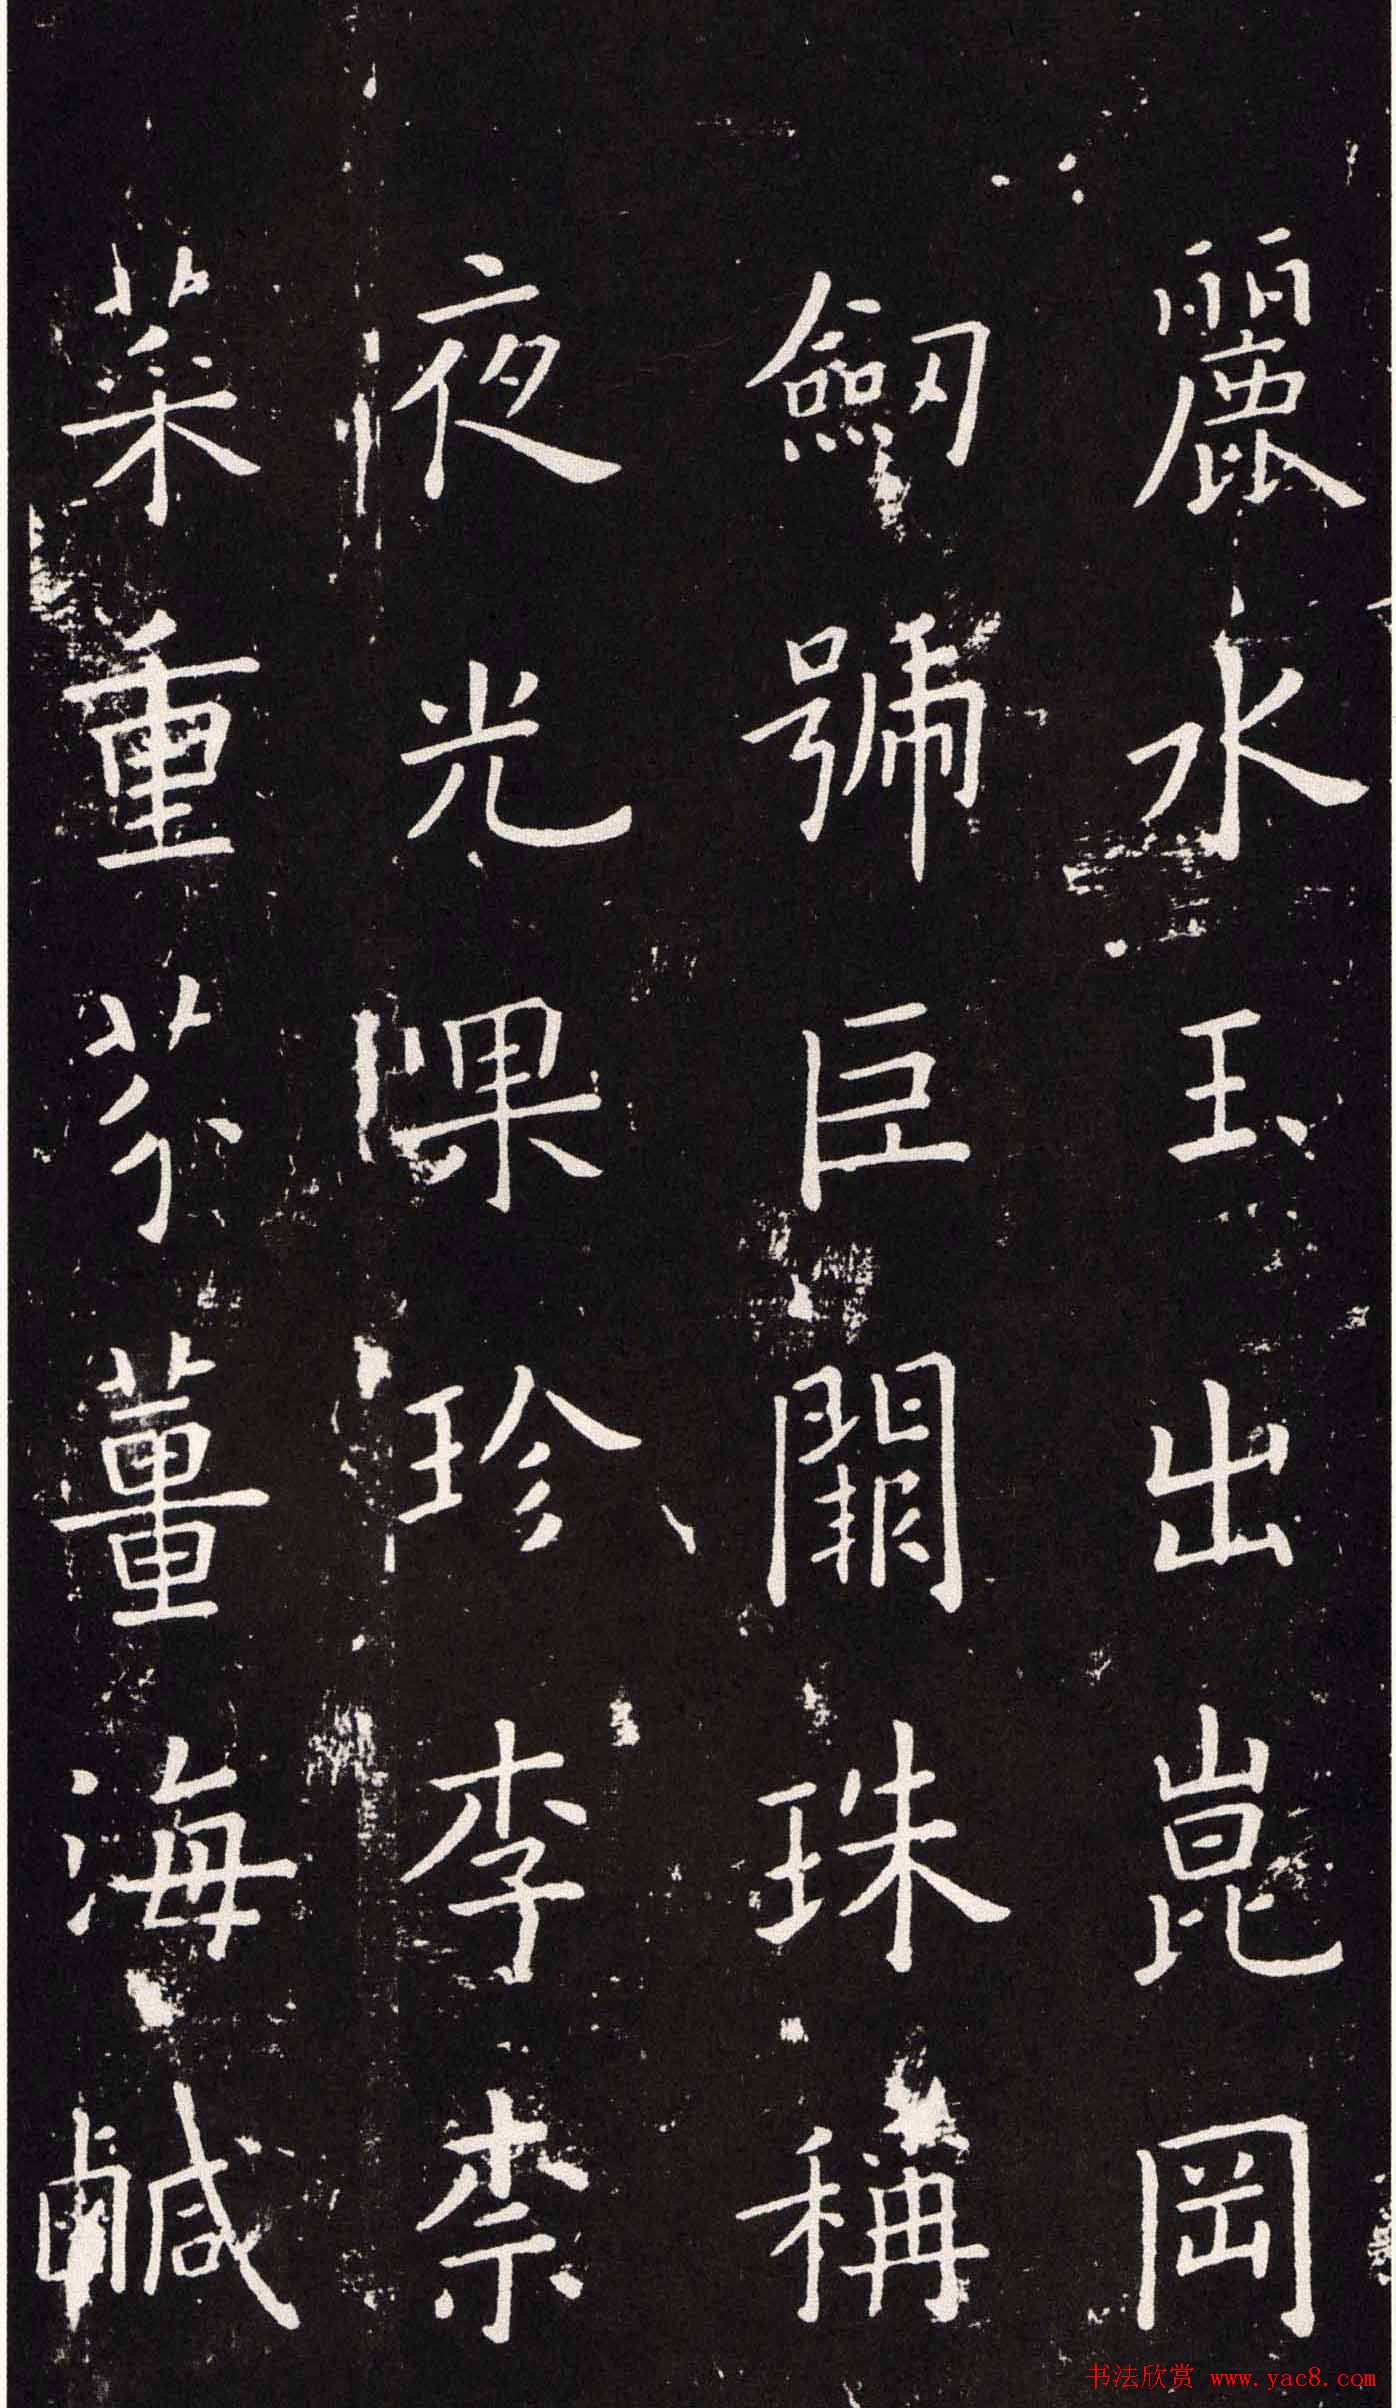 麗水玉出崑岡
劒號巨闕珠稱
夜光果珍李柰
菜重芥薑海鹹
书法欣赏 www.yac8.com